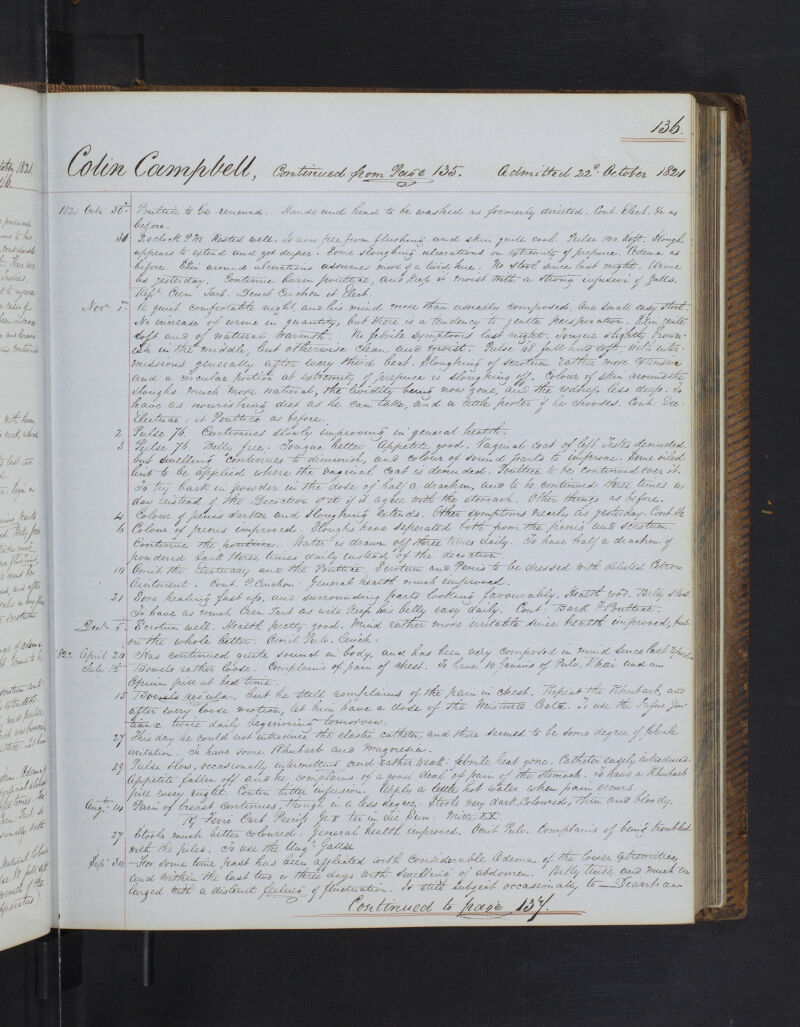 136.
Colin Campbell, Continued from Page 135. Admitted 22d. October 1821
1821 Octr. 30th. Poultice to be renewed. Hands and head to be washed as formerly directed. Cont. Elect. &c as
before.
31 2 o'clock P.M. Rested well. Is now free from flushing and skin quite cool. Pulse 100. Soft. Slough
appears to extend and get deeper. Some sloughing ulcerations on extremity of prepuce. Œdema as
before. Skin around ulcerations assumes more of a livid hue. No stool since last night. Urine
as yesterday. Continue warm poultice, and keep it moist with a strong infusion of galls.
Crem. Tart. Decoct Cinchon et Elect.
Novr. 1st. A quiet comfortable night, and his mind more than usually composed. One small easy stool.
No increase of urine in quantity, but there is a tendency to gentle perspiration. Skin quite
soft and of natural warmth. No febrile symptoms last night. Tongue slightly brown-
ish in the middle, but otherwise clean and moist. Pulse 96 full and soft with inter-
missions generally after every third beat. Sloughing of scrotum rather more extensive
and a circular portion at extremity of prepuce is sloughing off. Colour of skin around the
sloughs much more natural, the lividity being now gone, and the redness less deep. To
have as nourishing diet as he can take, and a little porter if he chooses. Cont. Dec:
Electuar: et Poultice as before.
2 Pulse 74. Continues slowly improving in general health.
3 Pulse 74. Belly free. Tongue better. Appetite good. Vaginal coat of left Testis denuded
but swelling continues to diminish, and colour of sound parts to improve. Some oiled
lint to be applied where the vaginal coat is denuded. Poultice to be continued over it.
To try bark in powder in the dose of half a drachm, and to be continued three times a
day instead of the Decoction if it agree with the stomach. Other things as before.
4 Colour of penis darker and sloughing extends. Other symptoms nearly as yesterday. Cont. &c
6 Colour of penis improved. Sloughs have seperated both from the penis and scrotum.
Continue the poultice. Water is drawn off three times daily. To have half a drachm of
powdered bark three times daily instead of the decoction
10 Omit the Electuary and the Poultice. Scrotum and Penis to be dressed with diluted Citron
ointment. Cont. P. Cinchon: General health much improved.
21 Sore healing fast up, and surrounding parts looking favourably. Health good. Belly slow.
To have as much Crem Tart as will keep his belly easy daily. Cont. Bark & Poultice.
Decr. 5th. Scrotum well. Health pretty good. Mind rather more irritable since health improved, but
on the whole better. Omit Pulv. Cinch:
1822 April 20 Has continued quite sound in body, and has been very composed in mind since last report
July 12 Bowels rather loose. Complains of pain of chest. To have 10 grains of Pulv. Rhei and an
Opium pill at bed time.
15 Bowels regular, but he still complains of the pain in chest. Repeat the Rhubarb, and
after every loose motion, let him have a dose of the Mistura Creta. To use the Infus. Gen-
tianæ twice daily beginning tomorrow.
27 This day he could not introduce the elastic catheter, and there seemed to be some degree of febrile
irritation. To have some Rhubarb and Magnesia.
29 Pulse slow, occasionally intermittent and rather weak. Febrile heat gone. Catheter easily introduced.
Appetite fallen off and he complains of a good deal of pain of the stomach. To have a Rhubarb
pill every night. Contr. bitter infusion. Apply a cloth hot water when pain occurs.
Augt. 14 Pain of breast continues, though in a less degree. Stools very dark coloured, thin and bloody.
R Ferri Carb Precip Gr 8 ter in die Sum: Mitte XX.
27 Stools much better coloured. General health improved. Omit Pulv. Complains of being troubled
with the piles. To use the Ung: Gallæ
Sepr. 30 For some time past has been afflicted with considerable Œdema of the lower extremities,
and within the last two or three days with swelling of abdomen. Belly tense and much en-
larged with a distinct feeling of fluctuation. Is still subject occasionally to Diarrhœa
Continued to page 137.